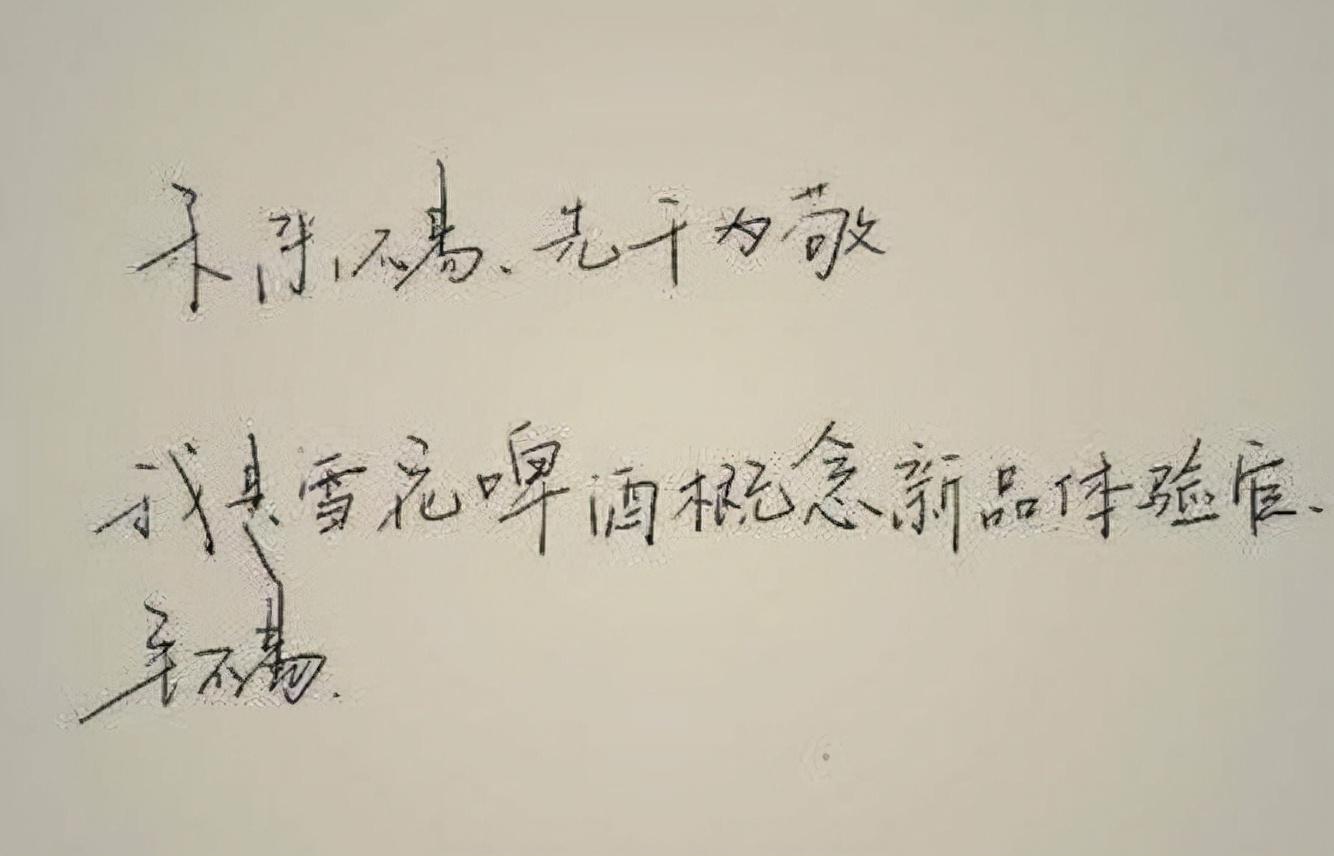 来日不易、先干为敬
我是雪花啤酒概念新品体验官、
毛不易.